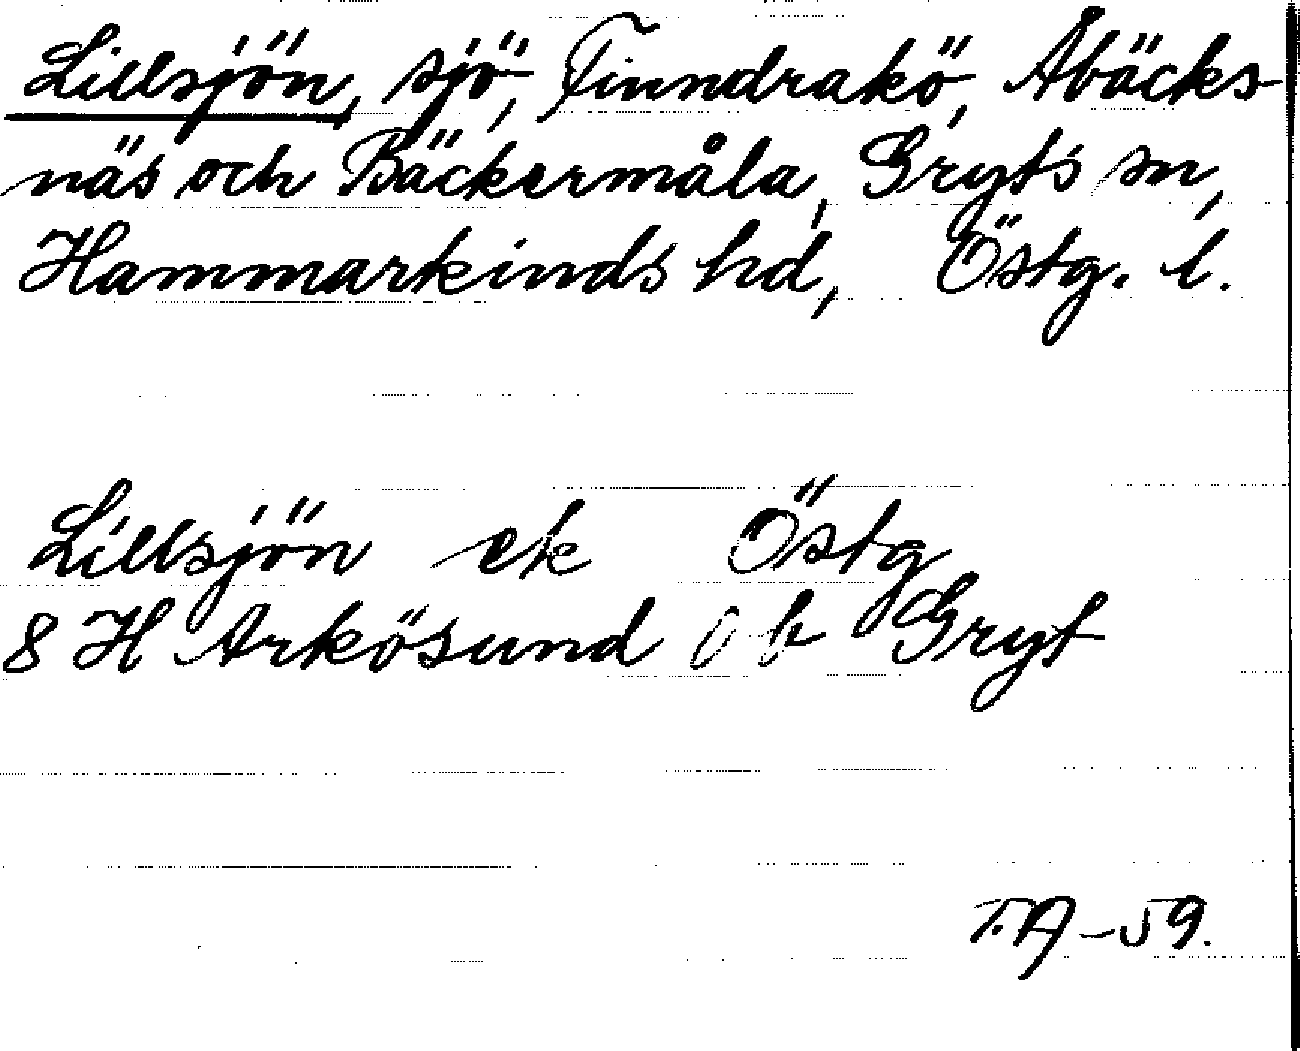 Lillsjön, sjö, Finndrakö, Åbäcks-
näs och Bäckermåla, Gryts sn,
Hammarkinds hd, Östg. l.
Lillsjön ek Östg
8 H Arkösund Ob Gryt
T.A-59.